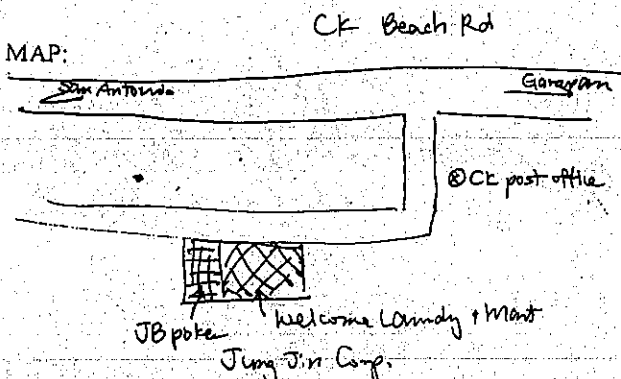 CK Beach Rd
MAP:
San Antonio
Garapan
⊗ CK post office
JB poker
Welcome Laundry + Mart
Jung Jin Corp.